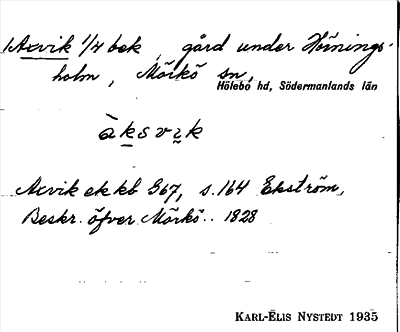 1 Axvik 1/4 bek, gård under Hörnings-
holm, Mörkö sn,
Hölebo hd, Södermanlands län
àksvik
Axvik ek kb 367, s. 164 Ekström,
Beskr. öfver Mörkö.. 1828
KARL-ELIS NYSTEDT 1935